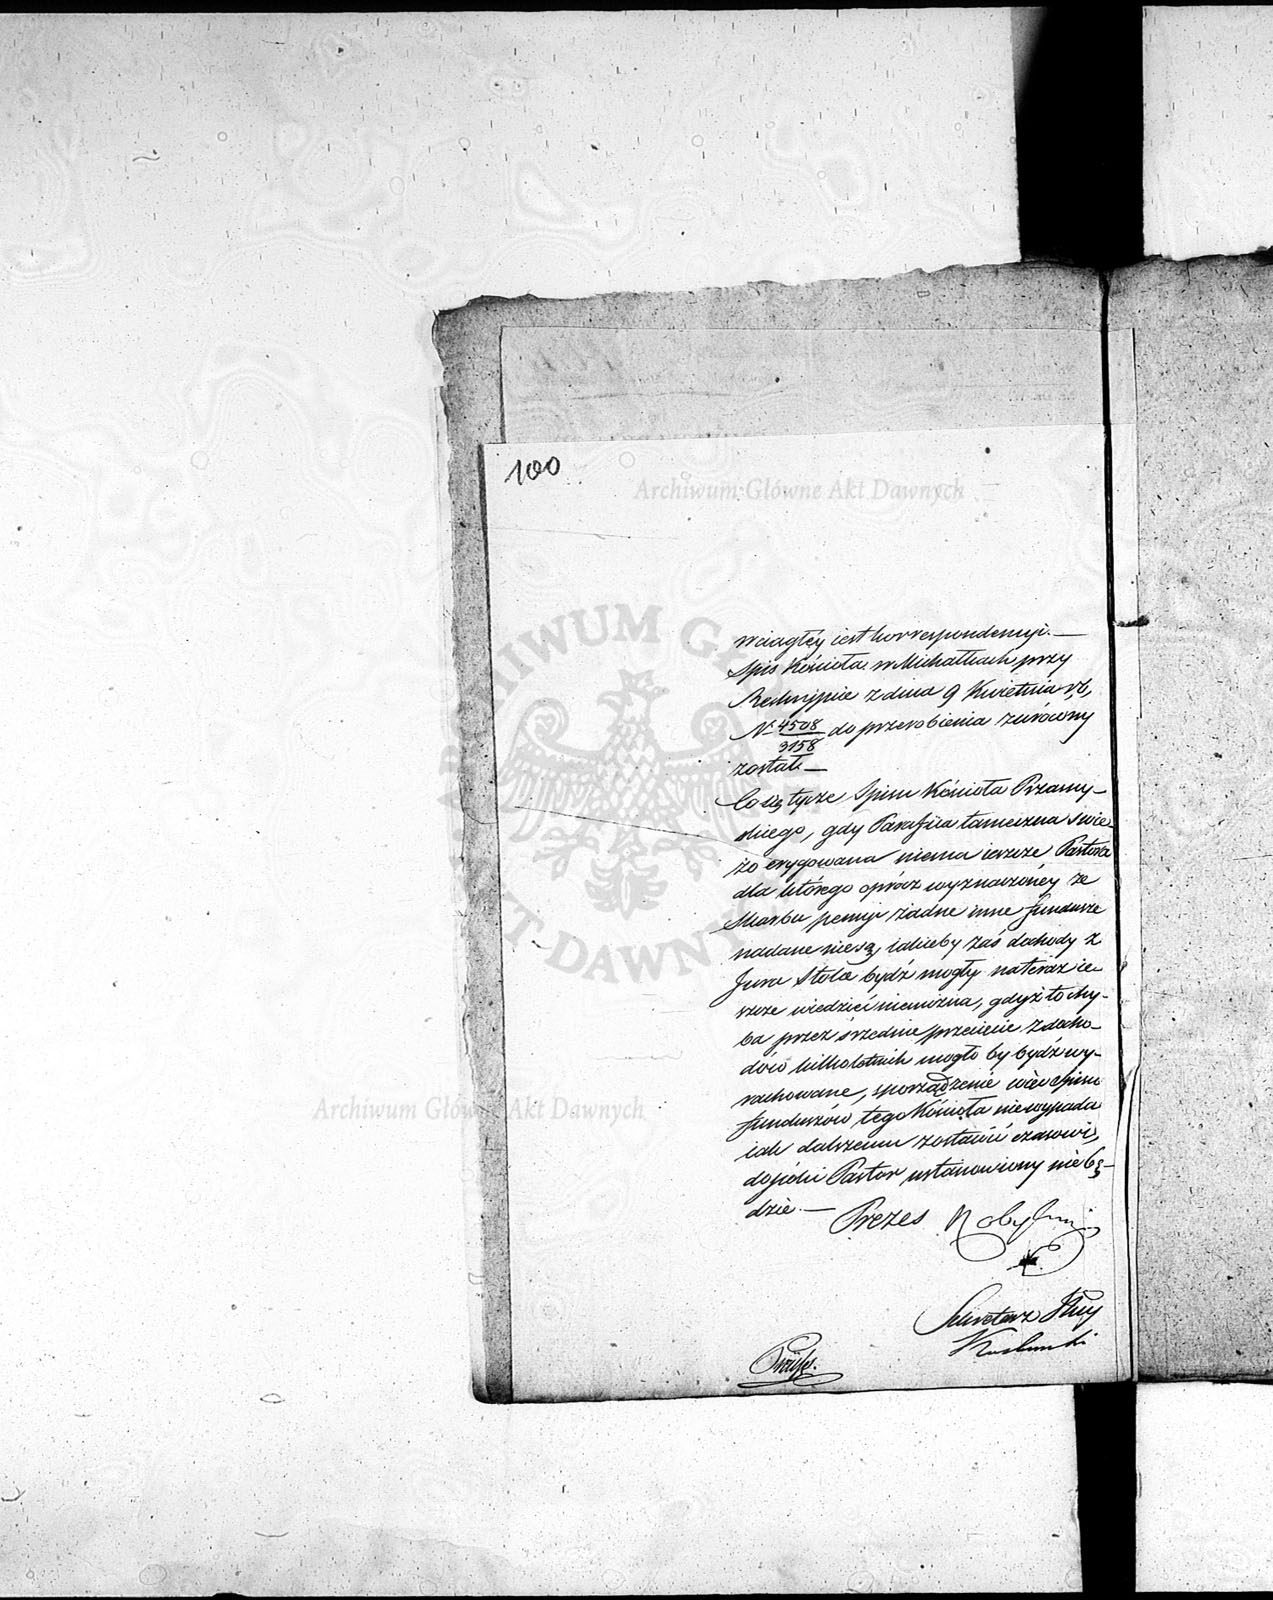 100
Archiwum Główne Akt Dawnych
w ciągłéy iest korrespondencyi. —
Spis Kościoła w Michałkach przy
Reskrypcie z dnia 9 Kwietnia r, b,
N 4508/3158 do przerobienia zwrócony
został. —
Co się tycze Spisu Kościoła Przasny-
skiego, gdy Parafiia tameczna świe-
żo erygowana niema ieszcze Pastora
dla którego oprócz wyznaczonéy ze
Skarbu pensyi żadne inne fundusze
nadane niesą, iakieby zaś dochody z
Jura Stolæ bydź mogły na teraz ie-
szcze wiedzieć niemożna, gdyż to chy-
ba przez średnie przecięcie z docho-
dów kilkoletnich mogło by bydź wy-
rachowane, sporządzenie więc Spisu
funduszów tego Kościoła niewypada
iak dalszemu zostawić czasowi,
dopóki Pastor ustanowiony niebę-
dzie. —
Prezes
Sekretarz Jlny
Archiwum Główne Akt Dawnych